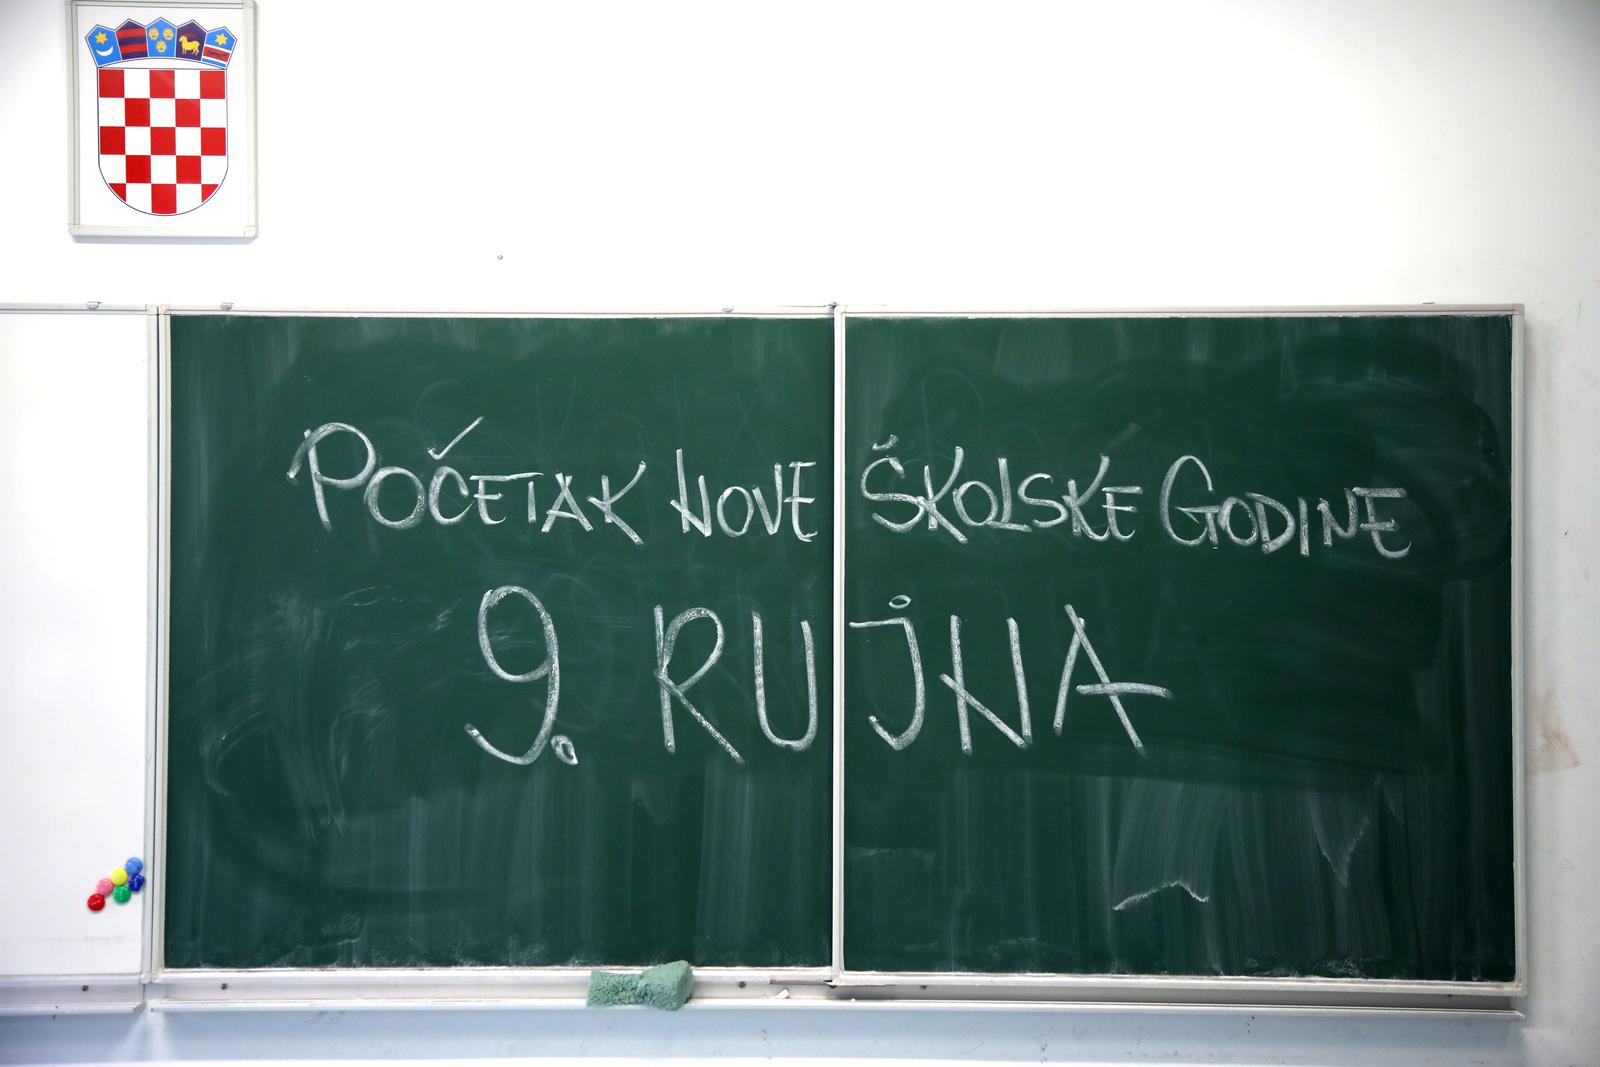 POČETAK NOVE ŠKOLSKE GODINE
9. RUJNA